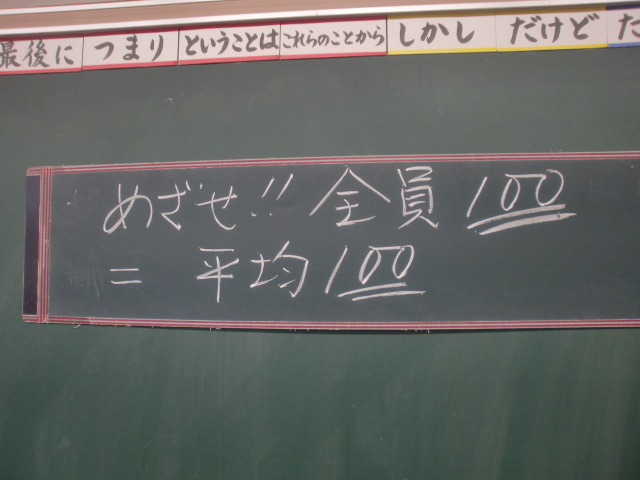 最後に つまり ということは これらのことから しかし だけど た
めざせ!! 全員100
= 平均100